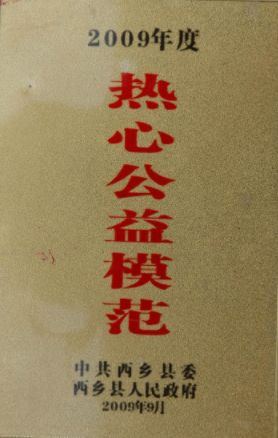 2009年度
热心公益模范
中共西乡县委
西乡县人民政府
2009年9月